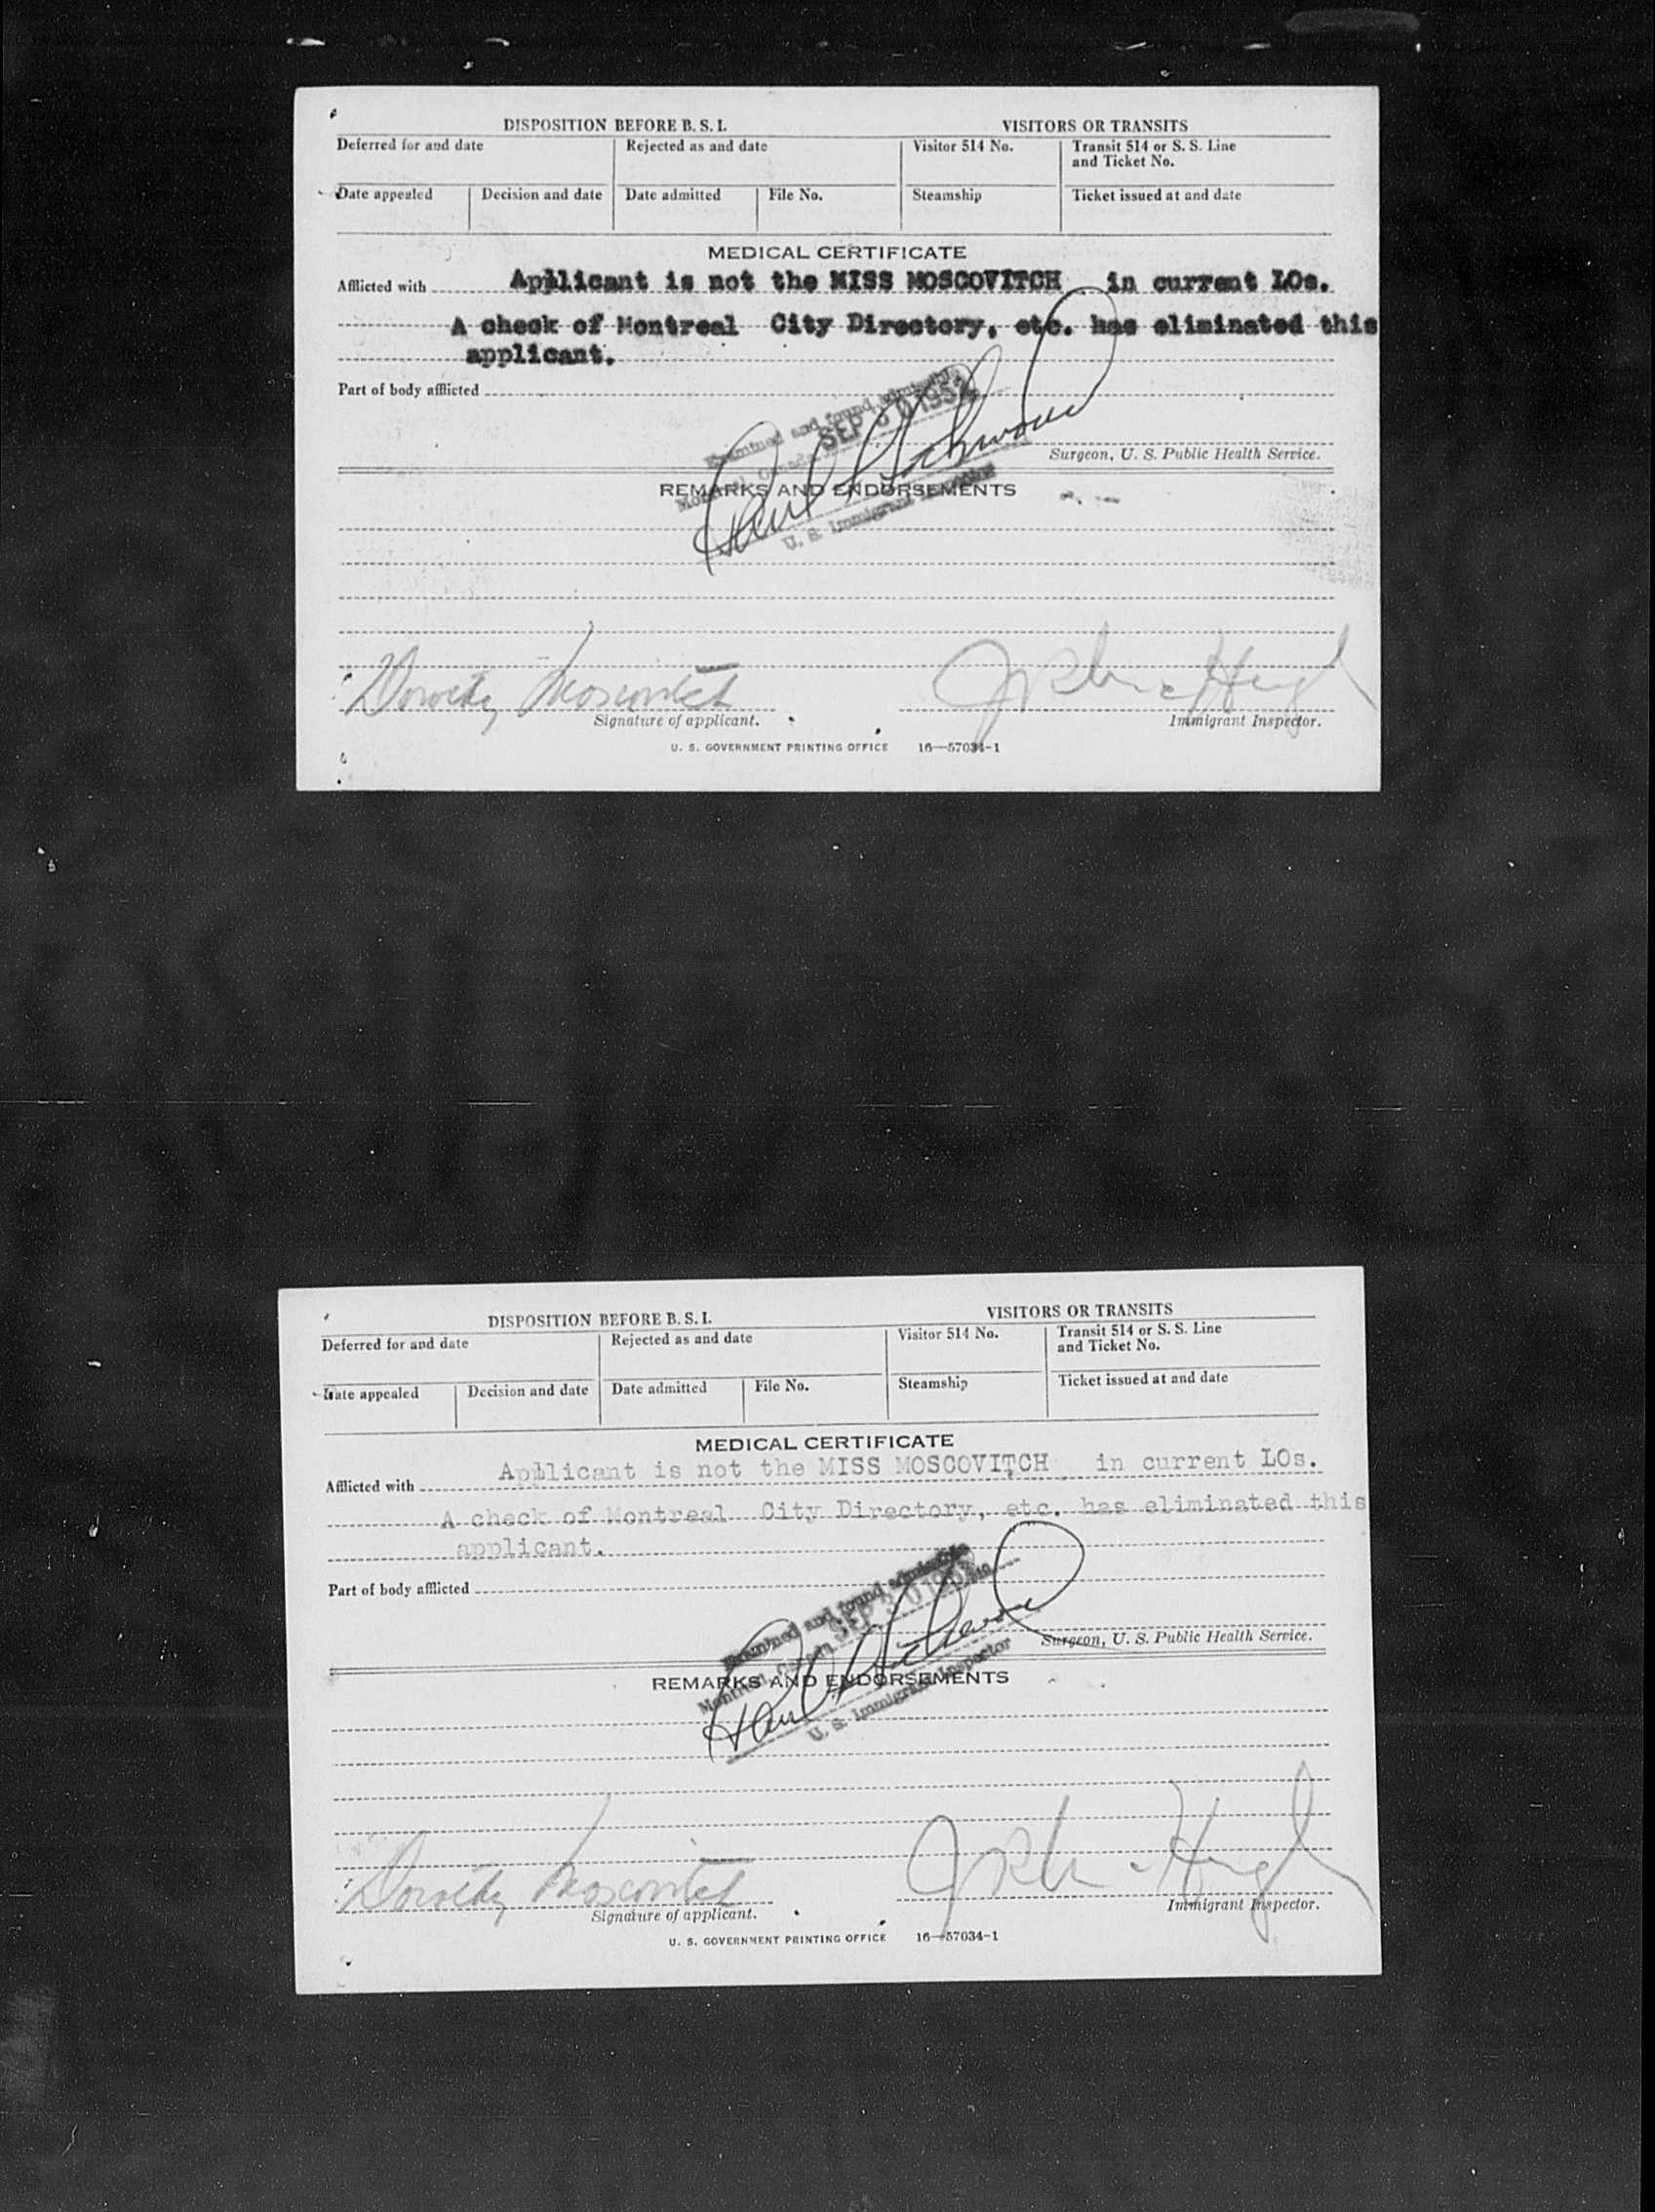 DISPOSITION BEFORE B. S. I.
VISITORS OR TRANSITS
Deferred for and date
Rejected as and date
Visitor 514 No.
Transit 514 or S. S. Line
and Ticket No.
Date appealed
Decision and date
Date admitted
File No.
Steamship
Ticket issued at and date
MEDICAL CERTIFICATE
Afflicted with Applicant is not the MISS MOSCOVITCH in current LOs.
A check of Montreal City Directory, etc. has eliminated this
applicant.
Part of body afflicted
Examined and found admissible
Montreal, Canada SEP 30
U. S. Immigrant Inspector
Surgeon, U. S. Public Health Service.
REMARKS AND ENDORSEMENTS
Dorothy Moscovitch
Signature of applicant.
Immigrant Inspector.
U. S. GOVERNMENT PRINTING OFFICE 16—57034-1
DISPOSITION BEFORE B. S. I.
VISITORS OR TRANSITS
Deferred for and date
Rejected as and date
Visitor 514 No.
Transit 514 or S. S. Line
and Ticket No.
Date appealed
Decision and date
Date admitted
File No.
Steamship
Ticket issued at and date
MEDICAL CERTIFICATE
Afflicted with Applicant is not the MISS MOSCOVITCH in current LOs.
A check of Montreal City Directory, etc. has eliminated this
applicant.
Part of body afflicted
Examined and found admissible
Montreal, Canada SEP 30
U. S. Immigrant Inspector
Surgeon, U. S. Public Health Service.
REMARKS AND ENDORSEMENTS
Dorothy Moscovitch
Signature of applicant.
Immigrant Inspector.
U. S. GOVERNMENT PRINTING OFFICE 16—57034-1